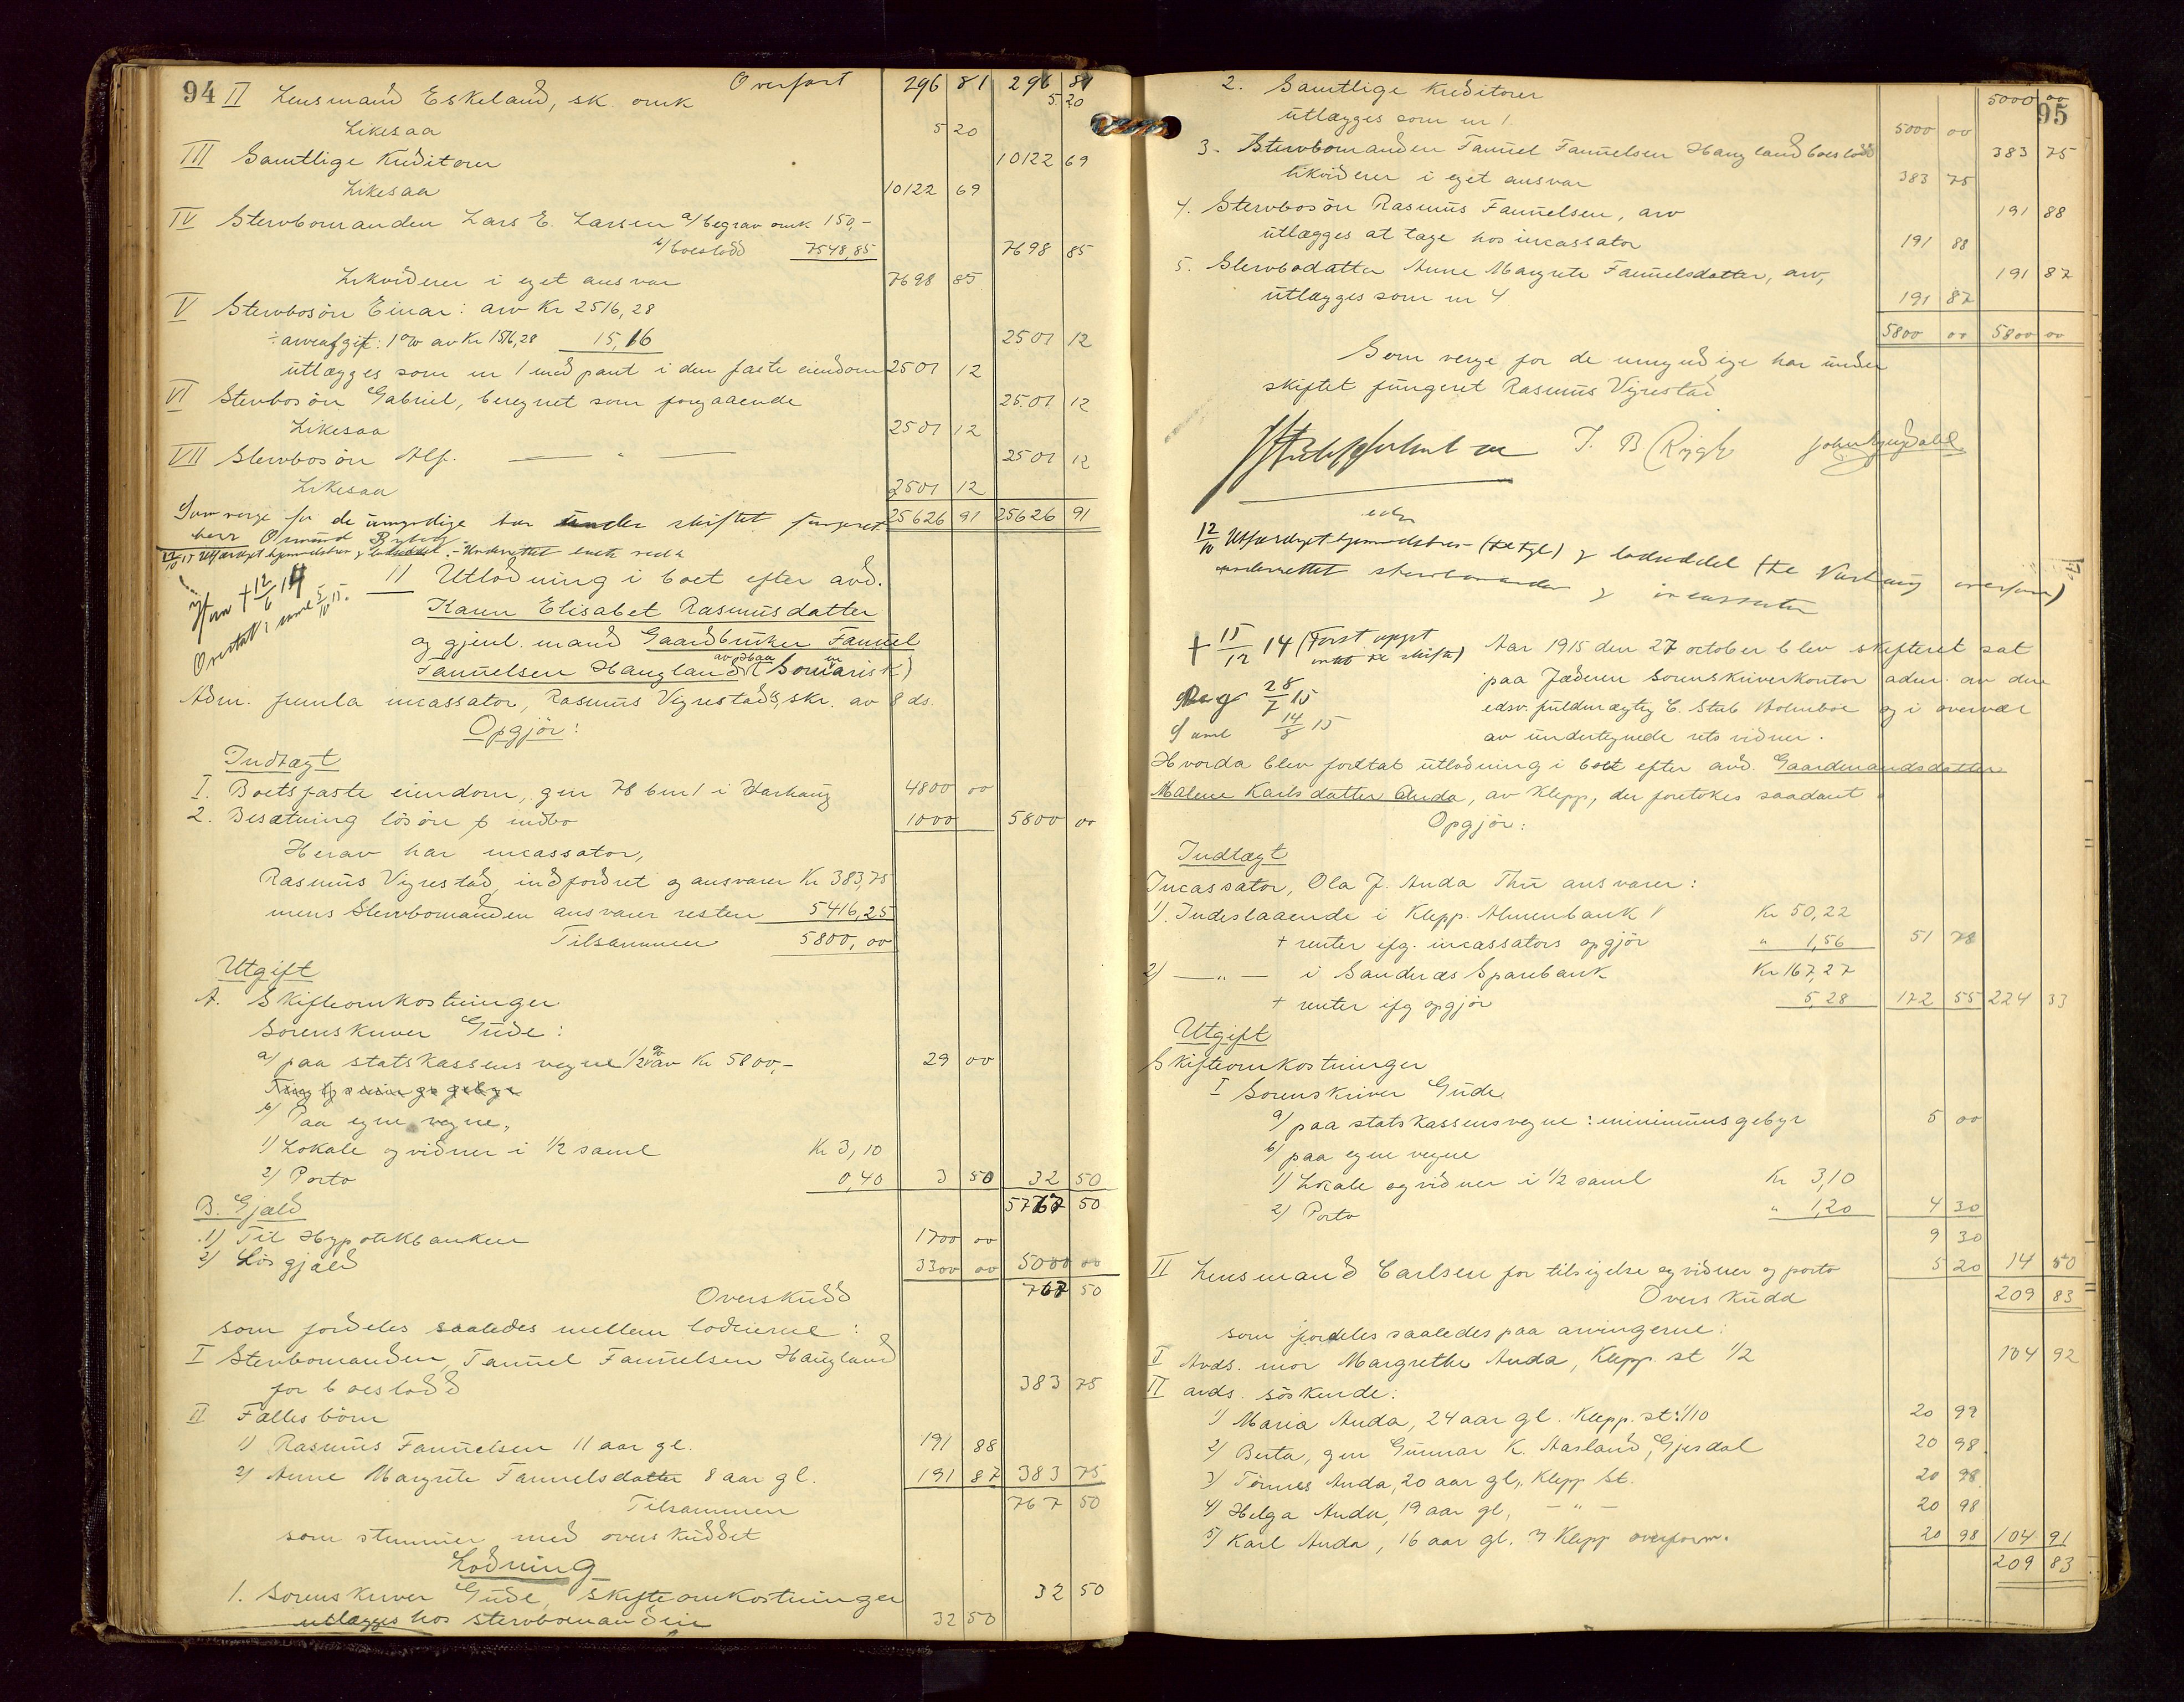 94 Overført 296 81 296 81
II Lensmand Eskeland, sk. omk 5 20
Likesaa 5 20
III Samtlige Kreditorer 10122 69
Likesaa 10122 69
IV Stervbomanden Lars E. Larsen a/ begrav omk 150,-
b/ boeslodd 7548,85 7698 85
Likviderer i eget ansvar 7698 85
V Stervbosön Einar: arv Kr 2516,28
÷ arveafgift: 1 % av Kr 1516,28 15,16 2501 12
utlægges som nr 1 med pant i den faste eiendom 2501 12
VI Stervbosön Gabriel, beregnet som foregaaende 2501 12
Likesaa 2501 12
VII Stervbosön Alf. — " — 2501 12
Likesaa 2501 12
Som verge for de umyndige har under skiftet fungeret 25626 91 25626 91
herr Osmund
12/10 15 Utfærdiget hjemmelsbrev og lodseddel. - Underrettet enke
Han + 12/6 14
11 Utlodning i boet efter avd.
Karen Elisabet Rasmusdatter
og gjenl. mand Gaardbruker Fannuel
Fannuelsen Haugland av Haa (Somarisk)
Adm. forrila incassator, Rasmus Vigrestads, skr. av 8 ds.
Opgjör:
Indtægt
I. Boets faste eiendom, gnr 78 bnr 1 i Varhaug 4800 00
2. Besætning lösöre & indbo 1000 5800 00
Herav har incassator,
Rasmus Vigrestad, indfordret og ansvarer Kr 383,75
mens Stervbomanden ansvarer resten 5416,25
Tilsammen 5800,00
Utgift
A. Skifteomkostninger
Sorenskriver Gude:
a/ paa statskassens vegne 1/2 % av Kr 5800,- 29 00
b/ Paa egne vegne,
1/ Lokale og vidner i 1/2 saml Kr 3,10
2/ Porto 0,40 3 50 32 50
B. Gjæld 5767 50
1) Til Hypotekbanken 1700 00
2) Lös gjæld 3300 00 5000 00
Overskudd 767 50
som fordeles saaledes mellem lodeierne:
I Stervbomanden, Fannuel Fannuelsen Haugland
for boeslodd 383 75
II Fælles börn
1) Rasmus Fannuelsen 11 aar gl. 191 88
2) Anne Margrete Fannuelsdatter 8 aar gl. 191 87 383 75
Tilsammen 767 50
som stemmer med overskuddet
Lodning
1. Sorenskriver Gude, skifteomkostninger 32 50
utlægges hos stervbomanden 32 50
95
2. Samtlige Kreditorer 5000 00
utlægges som nr 1 5000 00
3. Stervbomanden Fannuel Fannuelsen Haugland boeslodd 383 75
likviderer i eget ansvar 383 75
4. Stervbosön Rasmus Fannuelsen, arv 191 88
utlægges at tage hos incassator 191 88
5. Stervbodatter Anne Margrete Fannuelsdatter, arv, 191 87
utlægges som nr 4 191 87
5800 00 5800 00
Som verge for de umyndige har under
skiftet fungeret Rasmus Vigrestad
12/10 Utfærdiget hjemmelsbrev (tetgl) og lodseddel (te Varhaug overform)
underrettet stervbomanden og incassator
+ 15/12 14 (Først opgit
Reg 28/7 15
Saml 14/8 15
Aar 1915 den 27 october blev skifteret sat
paa Jæderen Sorenskriverkontor adm. av den
edsv. fuldmægtig C. Stub Holmboe og i overvær
av undertegnede rets vidner.
Hvorda blev foretat utlodning i boet efter avd. Gaardmandsdatter
Malene Karlsdatter Anda, av Klepp, der foretokes saadant
Opgjör:
Indtægt
Incassator, Ola J. Anda Thu ansvarer:
1). Indestaaende i Klepp. Almenbank Kr 50,22
+ renter ifg. incassators opgjör " 1,56 51 78
2) — " — i Sandnæs Sparebank Kr 167,27
+ renter ifg opgjör 5,28 172 55 224 33
Utgift
Skifteomkostninger
I Sorenskriver Gude
a/ paa statskassens vegne: minimumsgebyr 5 00
b/ paa egne vegne
1) Lokale og vidner i 1/2 saml Kr 3,10
2/ Porto " 1,20 4 30
9 30
II Lensmand Carlsen for tilsigelse og vidner og porto 5 20 14 50
Overskudd 209 83
som fordeles saaledes paa arvingerne:
I Avds. mor Margrethe Anda, Klepp. st 1/2 104 92
II avds. söskende:
1/ Maria Anda, 24 aar gl. Klepp. st: 1/10 20 99
2/ Berta, gm Gunnar K. Aasland, Gjesdal 20 98
3/ Tönnes Anda, 20 aar gl, Klepp St. 20 98
4/ Helga Anda, 19 aar gl, — " — 20 98
5/ Karl Anda, 16 aar gl. Klepp overform. 20 98 104 91
209 83